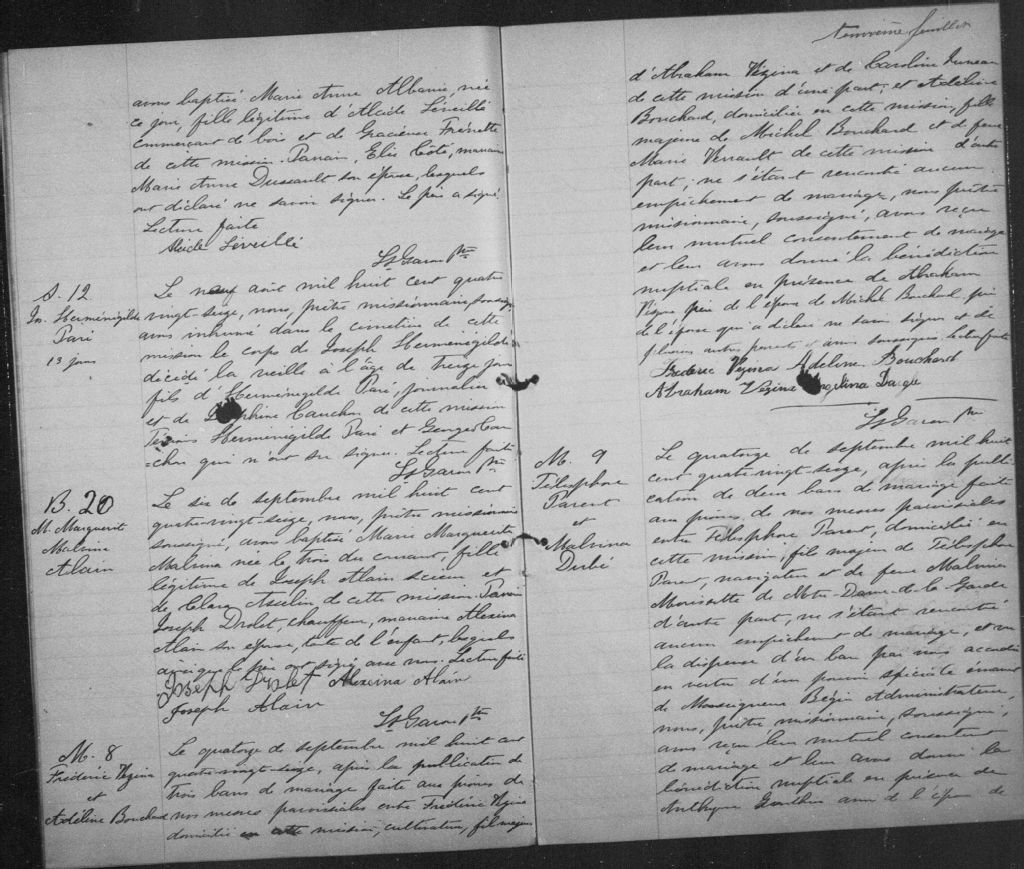 avons baptisé Marie Anne Albanie, née
ce jour, fille légitime d'Alcide Léveillé
commerçant de bois et de Gracieuse Frenette
de cette mission. Parrain, Elie Côté, marraine
Marie Anne Dussault son épouse, lesquels
ont déclaré ne savoir signer. Le père a signé.
Lecture faite
Alcide Léveillé
Ls Garon Ptre
S. 12
Jos. Herménégilde
Paré
13 jours
Le neuf août mil huit cent quatre
vingt-seize, nous, prêtre missionnaire, soussigné
avons inhumé dans le cimetière de cette
mission le corps de Joseph Herménégilde
décédé la veille à l'âge de treize jours
fils d'Herménégilde Paré, journalier
et de Cauchon de cette mission
Témoins Herménégilde Paré et George Cau
=chon qui n'ont su signer. Lecture faite
Ls Garon Ptre
B. 20
M. Marguerite
Malvina
Alain
Le six de septembre mil huit cent
quatre-vingt-seize, nous, prêtre missionnaire
soussigné, avons baptisé Marie Marguerite
Malvina née le trois du courant, fille
légitime de Joseph Alain scieur et
de Clara Asselin de cette mission. Parrain
Joseph Drolet, chauffeur, marraine Alexina
Alain son épouse, tante de l'enfant, lesquels
ainsi que le père ont signé avec nous. Lecture faite
Joseph Drolet Alexina Alain
Joseph Alain
Ls Garon Ptre
M. 8
Frédéric Vézina
et
Adéline Bouchard
Le quatorze de septembre mil huit cent
quatre-vingt-seize, après la publication de
trois bans de mariage faite aux prônes de
nos messes paroissiales entre Frédéric Vézina
domicilié en cette mission, cultivateur, fils majeur
feuillet
d'Abraham Vézina et de Caroline
de cette mission d'une part; et Adéline
Bouchard, domiciliée en cette mission, fille
majeure de Michel Bouchard et de feue
Marie Verrault de cette mission d'autre
part; ne s'étant rencontré aucun
empêchement de mariage, nous prêtre
missionnaire, soussigné, avons reçu
leur mutuel consentement de mariage
et leur avons donné la bénédiction
nuptiale en présence de Abraham
Vézina père de l'époux de Michel Bouchard père
de l'épouse qui a déclaré ne savoir signer et de
plusieurs autres parents et amis soussignés. Lecture faite
Frederic Vezina Adeline Bouchard
Abraham Vezina
Ls Garon Ptre
M. 9
Télesphore
Parent
et
Malvina
Derbé
Le quatorze de septembre mil huit
cent-quatre-vingt-seize, après la publi-
cation de deux bans de mariage faite
aux prônes de nos messes paroissiales
entre Télesphore Parent, domicilié en
cette mission, fils majeur de Télesphore
Parent, navigateur et de feue Malvina
Morissette de Notre-Dame-de-la-Garde
d'autre part, ne s'étant rencontré
aucun empêchement de mariage, et vu
la dispense d'un ban par nous accordée
en vertu d'un pouvoir spécial émané
de Monseigneur Bégin Administrateur,
nous, prêtre missionnaire, soussigné,
avons reçu leur mutuel consentement
de mariage et leur avons donné la
bénédiction nuptiale en présence de
Gauthier ami de l'époux de